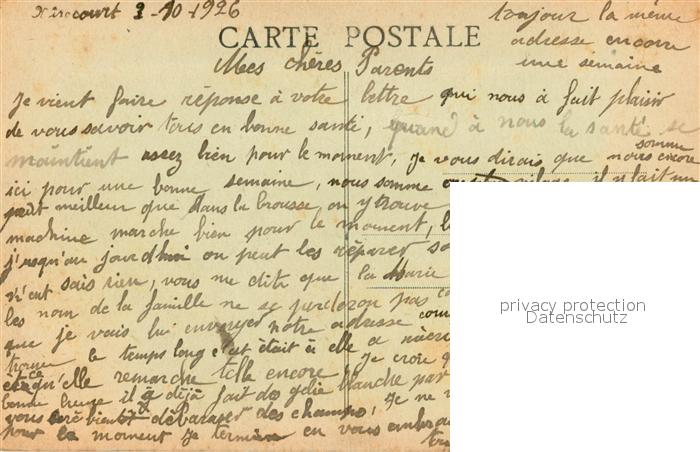 Mirocourt 3-10-1926
toujour la même
adresse encore
une semaine
CARTE POSTALE
Mes chères Parents
Je vient faire réponse à votre lettre qui nous à fait plaisir
de vous savoir tous en bonne santé, quand à nous la santé se
maintient assez bien pour le moment, je vous dirais que nous somme encore
ici pour une bonne semaine, nous somme il y fait un
petit meilleur que dans la brousse, on y trouve
machine marche bien pour le moment,
j'usqu'au jourdhui on peut les réparer
n'ent sais rien, vous me dite que la Marie
les nom de la famille ne se perderon pas
que je vais lui envoyer notre adresse
trouve le temps long c'est était à elle a
ce qu'elle remarche telle encore Je crois
bonne heure il à déjà fait des gelée blanche par Je ne
vous serè bientôt débarasser des champs,
pour le moment je termine en vous embra
privacy protection
Datenschutz